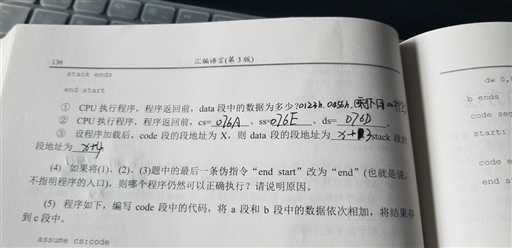 130
汇编语言(第3版)
stack ends
end start
① CPU执行程序，程序返回前，data段中的数据为多少？0123h、0456h、
② CPU执行程序，程序返回前，cs=076A、ss=076E、ds=076D。
③ 设程序加载后，code段的段地址为X，则data段的段地址为X+3 stack段的
段地址为X+4
(4) 如果将(1)、(2)、(3)题中的最后一条伪指令“end start”改为“end”(也就是说，
不指明程序的入口)，则哪个程序仍然可以正确执行？请说明原因。
(5) 程序如下，编写code段中的代码，将a段和b段中的数据依次相加，将结果存
到c段中。
assume cs:code
dw 0,
b ends
code seg
start:
code e
end s